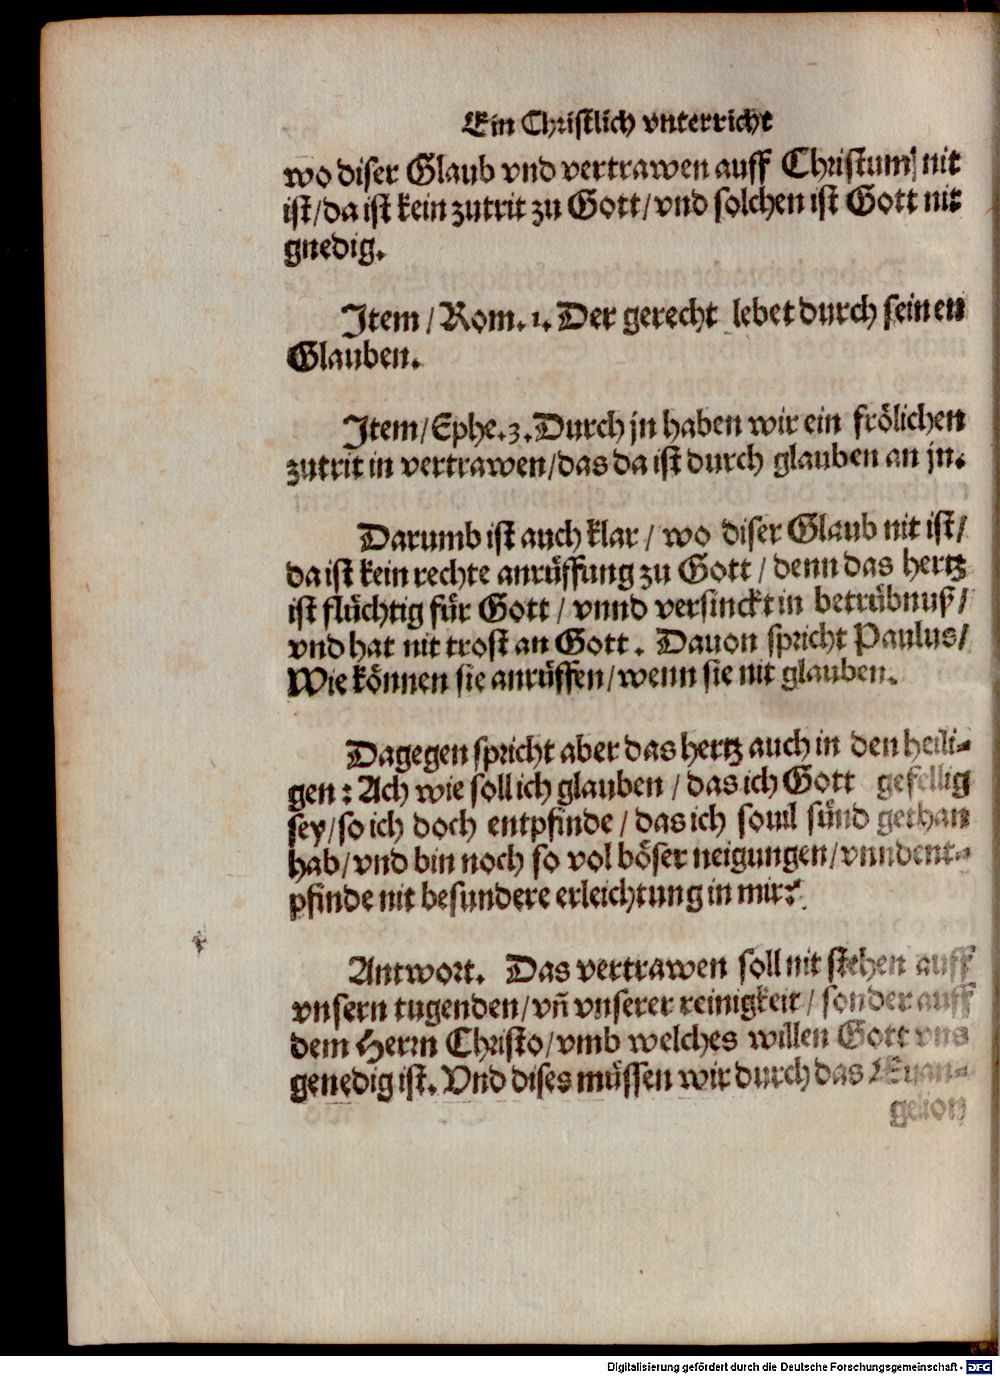 Ein Christlich vnterricht
wo diser Glaub vnd vertrawen auff Christum nit
ist/da ist kein zutrit zu Gott/vnd solchen ist Gott nit
gnedig.
Item/Rom. 1. Der gerecht lebet durch seinen
Glauben.
Item/Ephe. 3. Durch jn haben wir ein frölichen
zutrit in vertrawen/das da ist durch glauben an jn.
Darumb ist auch klar/wo diser Glaub nit ist/
da ist kein rechte anrüffung zu Gott/denn das hertz
ist flüchtig für Gott/vnnd versinckt in betrübnuß/
vnd hat nit trost an Gott. Dauon spricht Paulus/
Wie können sie anrüffen/wenn sie nit glauben.
Dagegen spricht aber das hertz auch in den heili-
gen: Ach wie soll ich glauben/das ich Gott gefellig
sey/so ich doch entpfinde/das ich souil sünd gethan
hab/vnd bin noch so vol böser neigungen/vnnd ent-
pfinde nit besundere erleichtung in mir?
Antwort. Das vertrawen soll nit stehen auff
vnsern tugenden/vñ vnserer reinigkeit/sonder auff
dem Herrn Christo/vmb welches willen Gott vns
genedig ist. Vnd dises müssen wir durch das Euan-
gelion
Digitalisierung gefördert durch die Deutsche Forschungsgemeinschaft - DFG